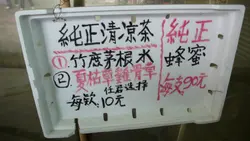 純正清凉茶
①竹蔗茅根水
②夏枯草雞骨草
任君選擇
每欵10元
純正
蜂蜜
每支90元